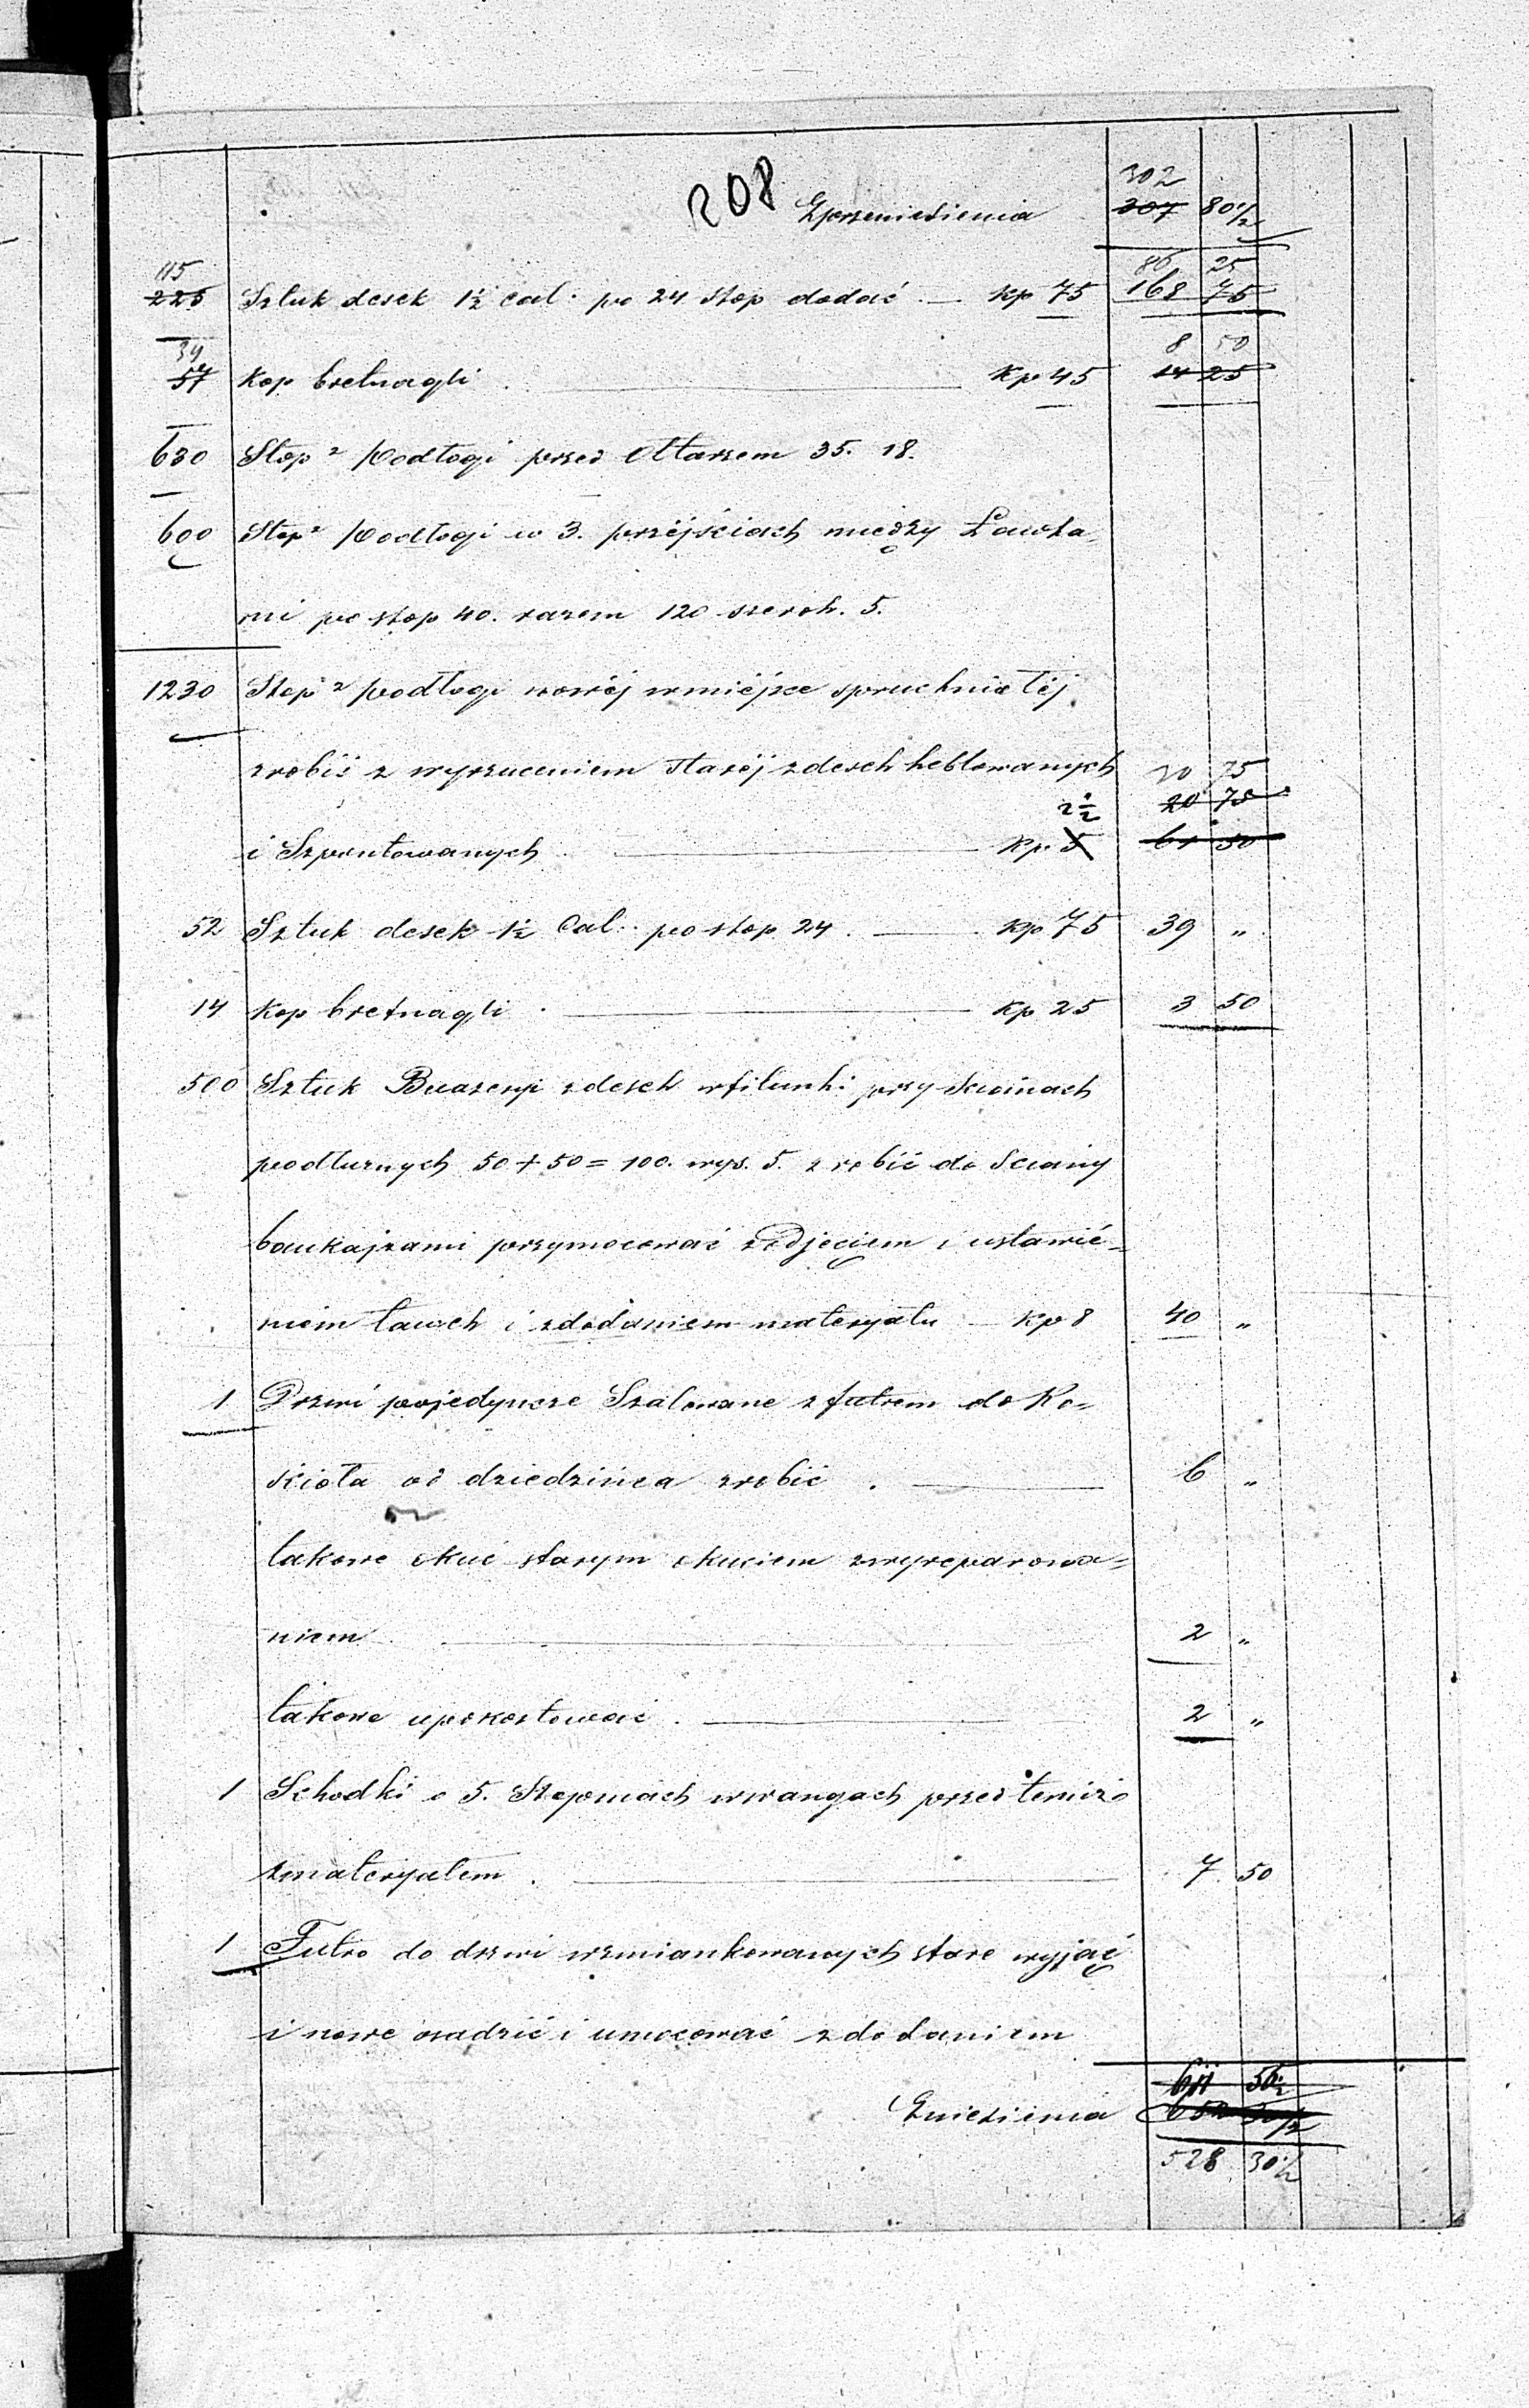 208
302
Zprzeniesienia 307 80 1/2
115 86 25
225 Sztuk desek 1 1/2 cal. po 24 stop dodać — kp 75 168 75
34 8 50
57 kop bretnagli . — kp 45 14 25
630 Stop² Podłogi przed Ołtarzem 35. 18.
600 Stop² Podłogi w 3. przejściach między Ławka-
mi po stop 40. razem 120 szerok. 5.
1230 Stop² podłogi nowéj wmiéjsce spruchniałéj
zrobić z wyrzuceniem staréj zdesek heblowanych 30 75
2 1/2 20 75
i Szpontowanych . — kp. 5 61 50
52 Sztuk desek 1 1/2 Cal. po stop 24 . — kp 75 39 "
14 kop bretnagli . — kp 25 3 50
500 Sztuk Buazeryi zdesek wfilunki przy Scianach
podłurznych 50 + 50 = 100. wys. 5. zrobić do Sciany
bankajzami przymocować zodjęciem i ustawie-
niem ławek i zdodaniem materyału — kp 8 40 "
1 Drzwi pojedyncze Szalowane z futrem do Ko=
scioła od dziedzińca zrobić . — 6 "
takowe okuć starym okuciem zwyreparowa=
niem — 2 "
takowe upokostować . — 2 "
1 Schodki o 5. Stopniach wwangach przed temiż
zmateryałem . — 7 50
1 Futro do drzwi wzmiankowanych stare wyjąć
i nowe osadzić i umocować zdodaniem
611 56 1/2
Zniesienia
528 30 1/2